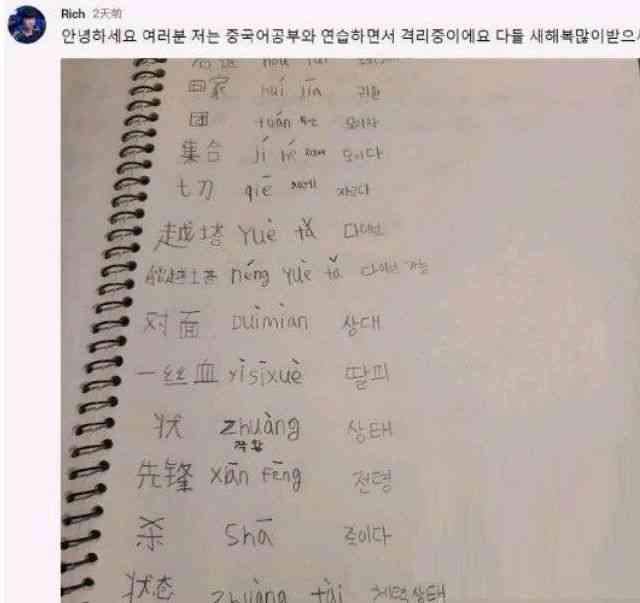 Rich 2天前
안녕하세요 여러분 저는 중국어공부와 연습하면서 격리중이에요 다들 새해복많이받으
回家 huí jiā 귀환
团 tuán 모이자
集合 jí hé 모이다
切 qiē 자르다
越塔 Yuè tǎ 다이브
能越塔 néng yuè tǎ 다이브 가능
对面 Duìmiàn 상대
一丝血 yìsīxuè 딸피
状 zhuàng 상태
先锋 xiān fēng 전령
杀 Shā 죽이다
状态 zhuàng tài 체력상태